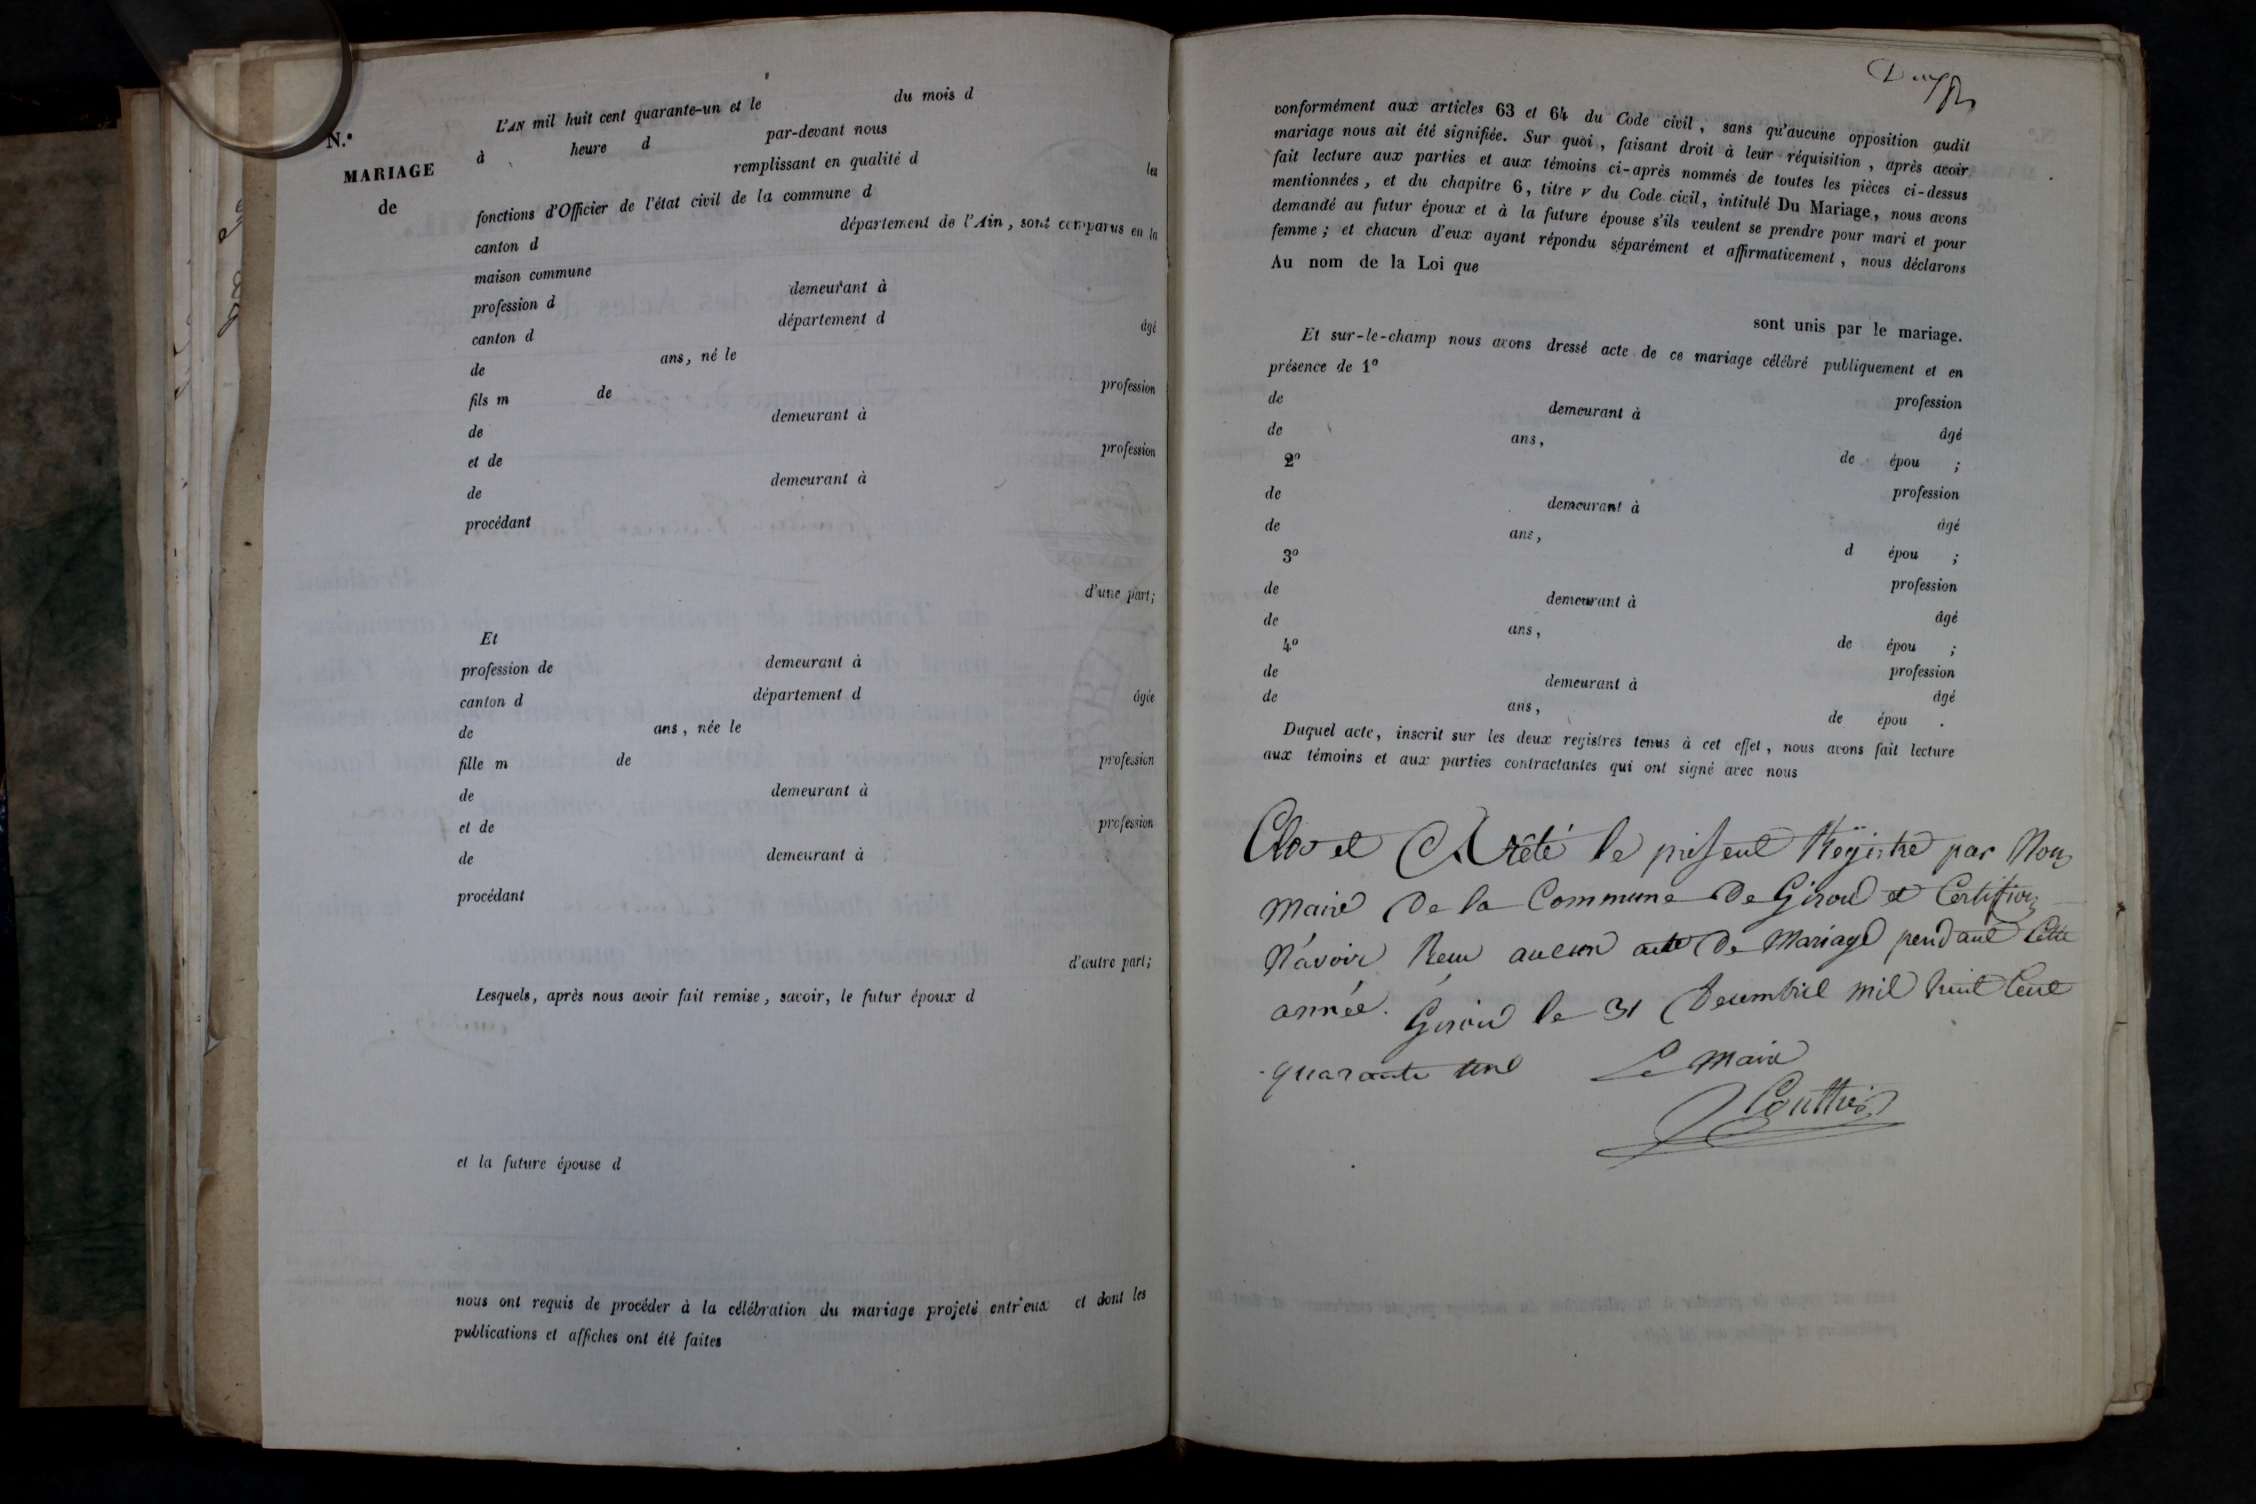 N.º
MARIAGE
de
L'AN mil huit cent quarante-un et le du mois d
à heure d par-devant nous
remplissant en qualité d les
fonctions d'Officier de l'état civil de la commune d
canton d département de l'Ain, sont comparus en la
maison commune
profession d demeurant à
canton d département d âgé
de ans, né le
fils m de profession
de demeurant à
et de profession
de demeurant à
procédant
d'une part;
Et
profession de demeurant à
canton d département d âgée
de ans, née le
fille m de profession
de demeurant à
et de profession
de demeurant à
procédant
d'autre part;
Lesquels, après nous avoir fait remise, savoir, le futur époux d
et la future épouse d
nous ont requis de procéder à la célébration du mariage projeté entr'eux et dont les
publications et affiches ont été faites
conformément aux articles 63 et 64 du Code civil, sans qu'aucune opposition audit
mariage nous ait été signifiée. Sur quoi, faisant droit à leur réquisition, après avoir
fait lecture aux parties et aux témoins ci-après nommés de toutes les pièces ci-dessus
mentionnées, et du chapitre 6, titre v du Code civil, intitulé Du Mariage, nous avons
demandé au futur époux et à la future épouse s'ils veulent se prendre pour mari et pour
femme; et chacun d'eux ayant répondu séparément et affirmativement, nous déclarons
Au nom de la Loi que
sont unis par le mariage.
Et sur-le-champ nous avons dressé acte de ce mariage célébré publiquement et en
présence de 1º
de demeurant à profession
de ans, âgé
2º de épou ;
de demeurant à profession
de ans, âgé
3º d épou ;
de demeurant à profession
de ans, âgé
4º de épou ;
de demeurant à profession
de ans, âgé
de épou .
Duquel acte, inscrit sur les deux registres tenus à cet effet, nous avons fait lecture
aux témoins et aux parties contractantes qui ont signé avec nous
Clos et Arrêté le présent Régistre par Nous
maire De la Commune De Giron et Certifions
N'avoir Reçu aucun acte De Mariage pendant Cette
année. Giron le 31 Decembre mil huit Cent
quarante une Le Maire